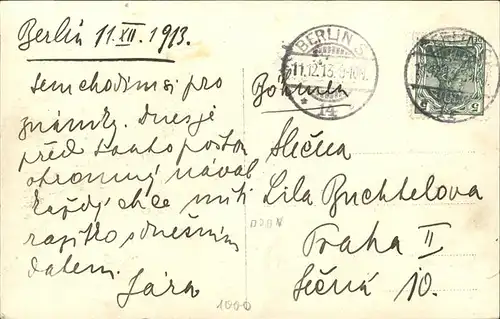 Berlin 11.XII.1913.
Sem chodím si pro
známky. Dnes je
před touto poštou
ohromný nával
každý chce míti
razítko s dnešním
datem.
Jára
BERLIN S
11.12.13. 9-10V.
* 14
Böhmen
Slečna
Lila Buchtelova
Praha II
Ječná 10.
1000
5
5